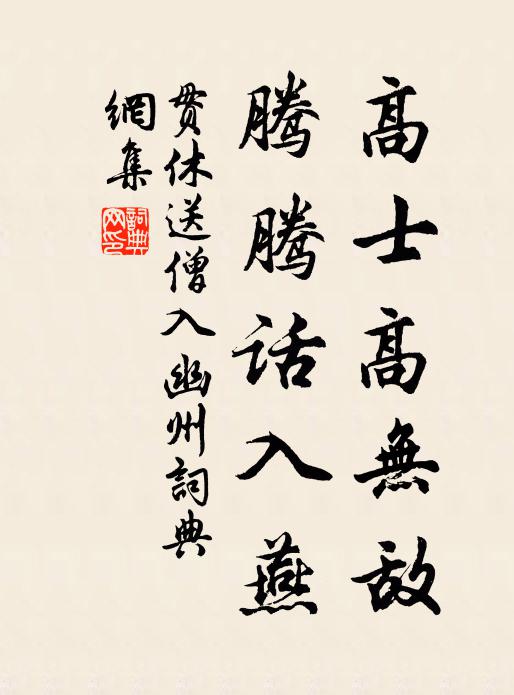 高士高無敵
騰騰話入燕
貫休送僧入幽州詞典
網集
詞典网印